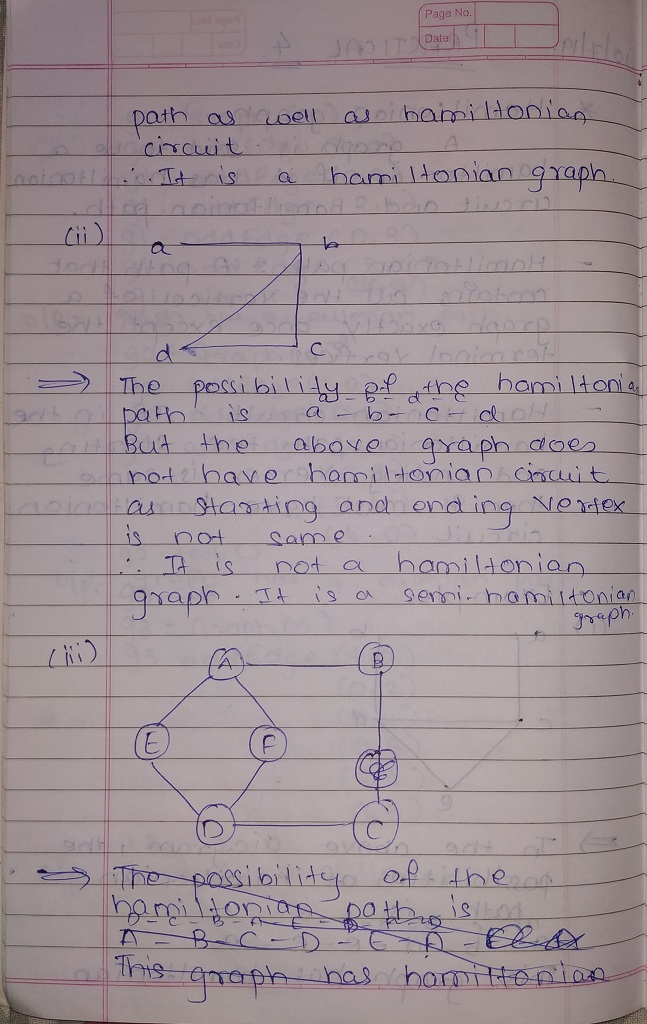 Page No.
Date
path as well as hamiltonian
circuit.
∴ It is a hamiltonian graph.
(ii)
a b
d c
⇒ The possibility of the hamiltonia
a - b - d - c
path is a - b - c - d
But the above graph does
not have hamiltonian circuit
as starting and ending vertex
is not same.
∴ It is not a hamiltonian
graph. It is a semi-hamiltonian
graph.
(iii)
A B
E F
D C
⇒ The possibility of the
hamiltonian path is
A - B - C - D - E - A -
This graph has hamiltonian